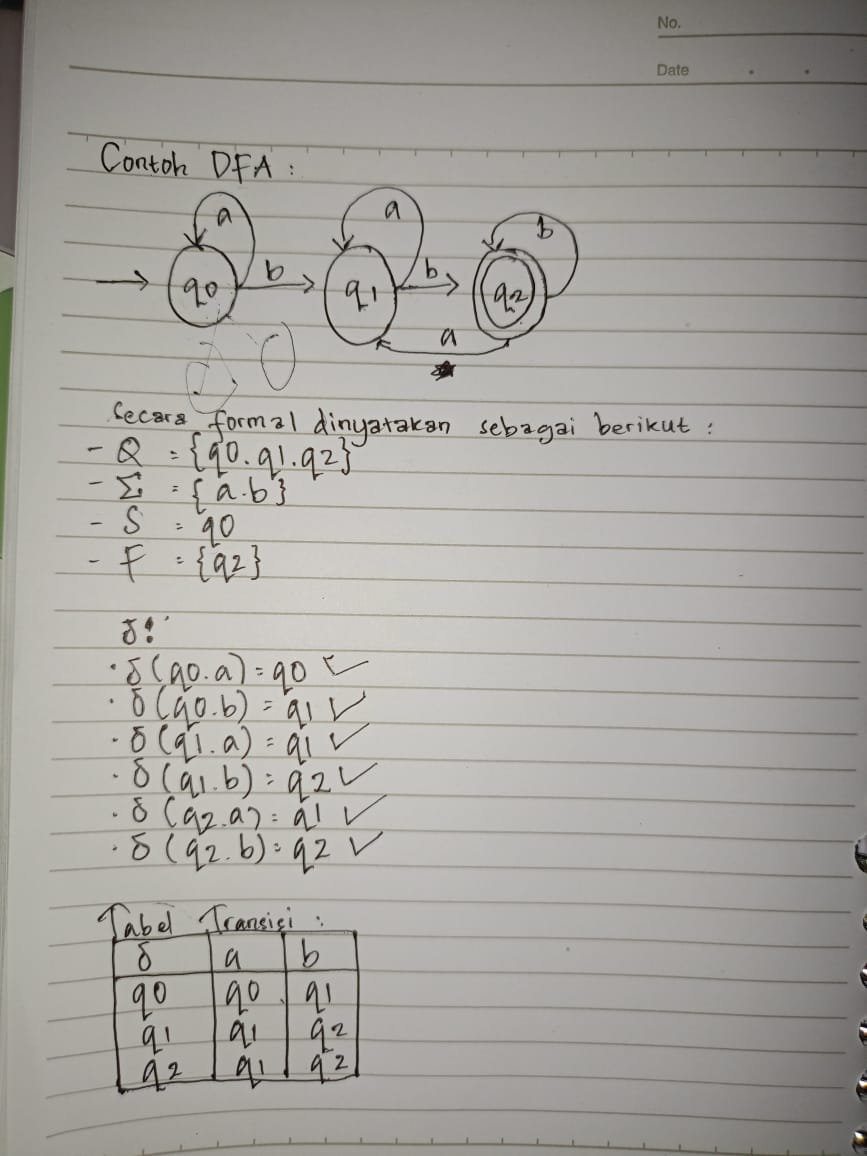 No.
Date
Contoh DFA :
a a b
q0 b q1 b q2
a
Secara formal dinyatakan sebagai berikut :
- Q = {q0.q1.q2}
- Σ = {a.b}
- S = q0
- F = {q2}
δ!
· δ(q0.a) = q0 ✓
· δ(q0.b) = q1 ✓
· δ(q1.a) = q1 ✓
· δ(q1.b) = q2 ✓
· δ(q2.a) = q1 ✓
· δ(q2.b) = q2 ✓
Tabel Transisi :
δ a b
q0 q0 q1
q1 q1 q2
q2 q1 q2